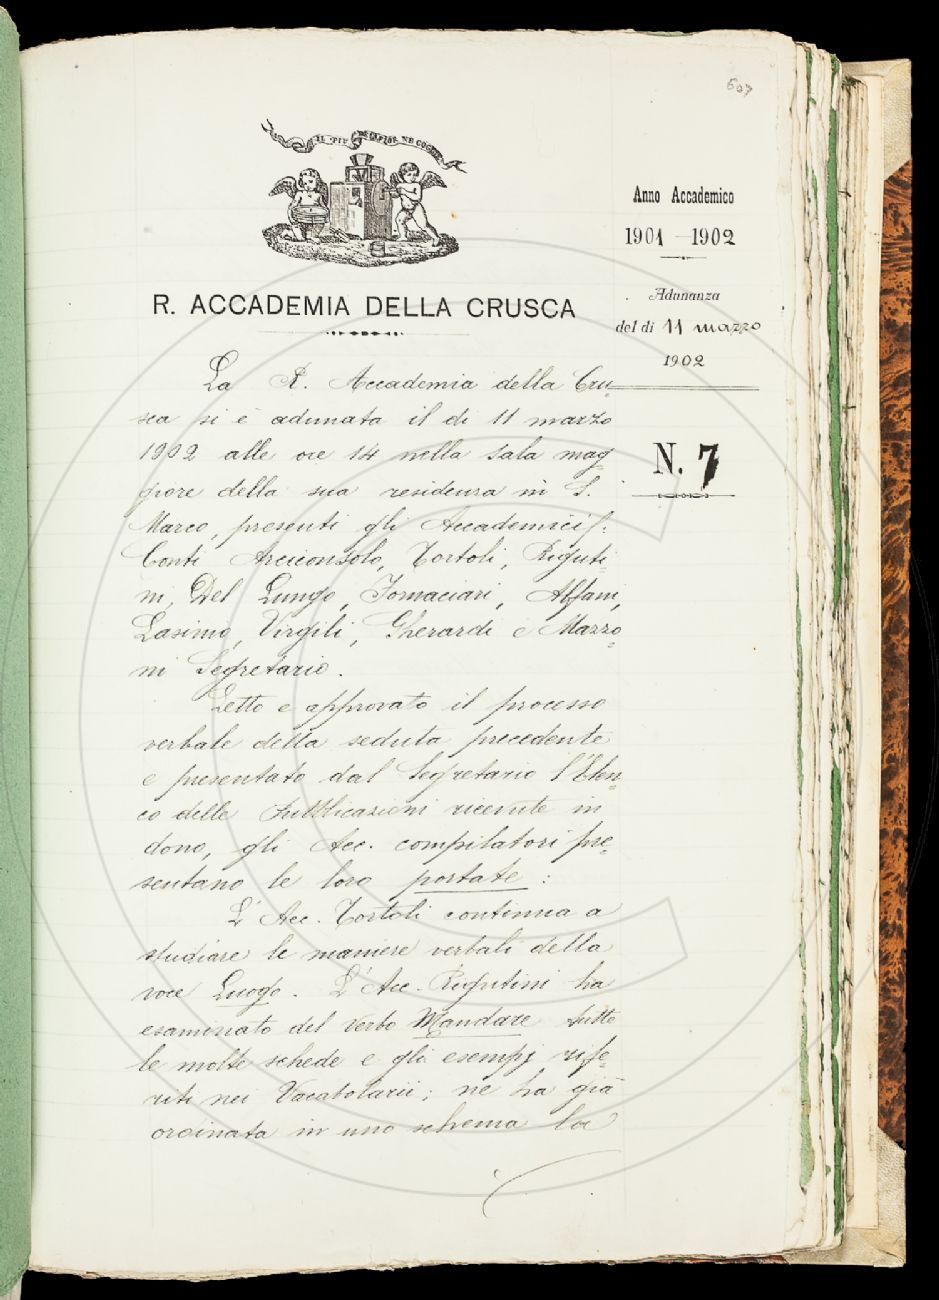 607
IL PIÙ BEL FIOR NE COGLIE
Anno Accademico
1901 - 1902
Adunanza
del dì 11 marzo
1902
N. 7
R. ACCADEMIA DELLA CRUSCA
La R. Accademia della Cru=
sca si è adunata il dì 11 marzo
1902 alle ore 14 nella sala mag=
giore della sua residenza in S.
Marco, presenti gli Accademici:
Conti Arciconsolo, Tortoli, Riguti=
ni, Del Lungo, Fornaciari, Alfani,
Lasinio, Virgili, Gherardi e Mazzo=
ni Segretario.
Letto e approvato il processo
verbale della seduta precedente
e presentato dal Segretario l'Elen=
co delle Pubblicazioni ricevute in
dono, gli Acc. compilatori pre=
sentano le loro portate:
L'Acc. Tortoli continua a
studiare le maniere verbali della
voce Luogo. L'Acc. Rigutini ha
esaminato del verbo Mandare tutte
le molte schede e gli esempj rife=
riti nei Vocabolarii; ne ha già
ordinata in uno schema la